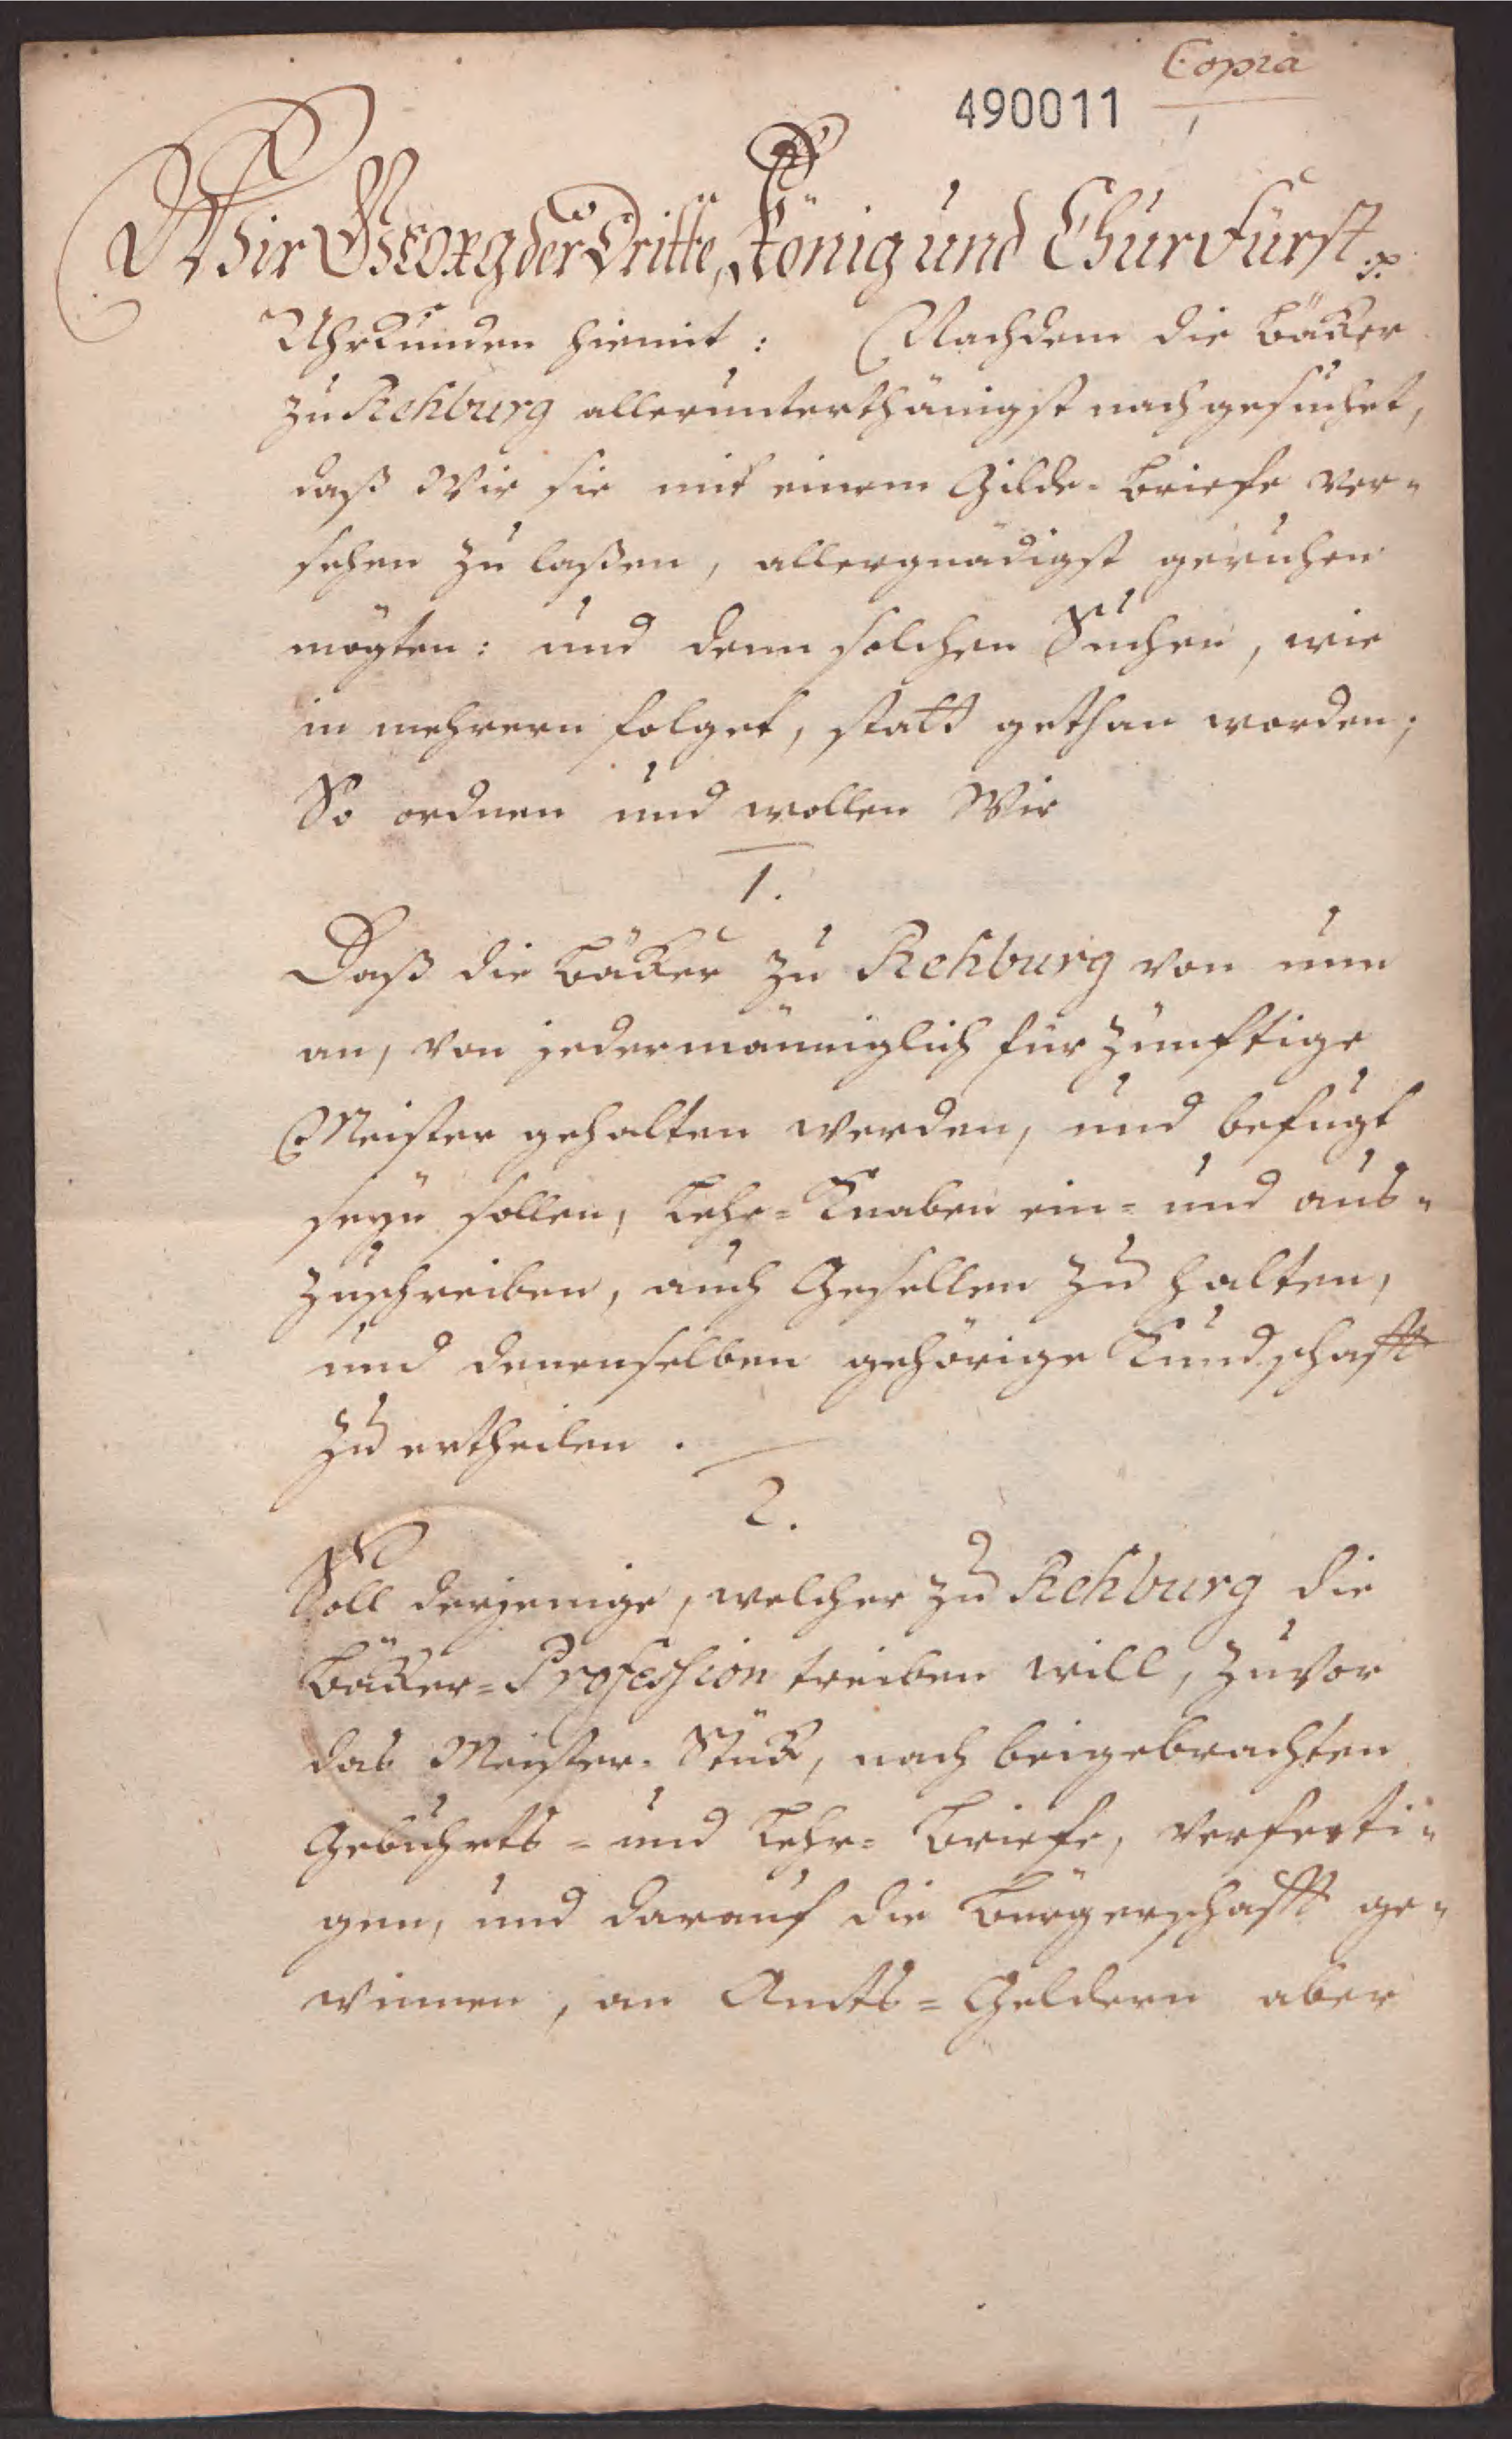 Copia
490011
Wir George der Dritte, König und Churfürst p.
Uhrkunden hiemit: Nachdem die Bäkker
zu Rehburg allerunterthänigst nachgesuchet,
daß Wir sie mit einem Gilde-Briefe ver-
sehen zu laßen, allergnädigst geruhen
mögten: und denn solchen Suchen, wie
in mehrern folget, statt gethan worden;
So ordnen und wollen Wir
1.
Daß die Bäkker zu Rehburg von nun
an, von jedermänniglich für zünftige
Meister gehalten werden, und befugt
seyn sollen, Lehr-Knaben ein- und aus-
zuschreiben, auch Gesellen zu halten,
und denenselben gehörige Kundschafft
zu ertheilen.
2.
Soll derjenige, welcher zu Rehburg die
Bäkker-Profession treiben will, zuvor
das Meister-Stükk, nach beigebrachten
Gebuhrts- und Lehr-Briefe, verferti-
gen, und darauf die Bürgerschafft ge-
winnen, an Amts-Geldern aber